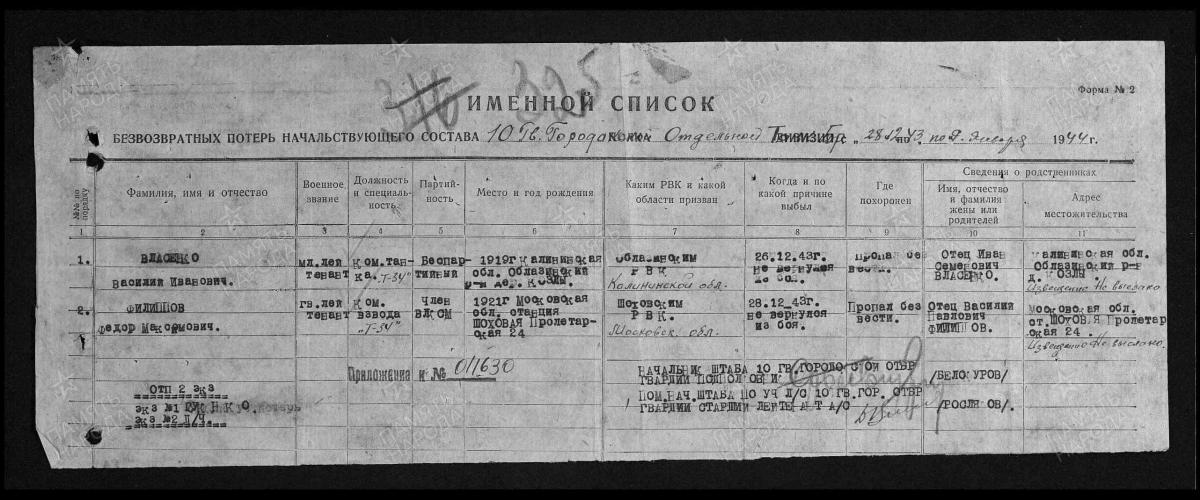 325
Форма № 2
ИМЕННОЙ СПИСОК
БЕЗВОЗВРАТНЫХ ПОТЕРЬ НАЧАЛЬСТВУЮЩЕГО СОСТАВА 10 Гв. Отдельной „ 28.12.43 по января 1944 г.
Сведения о родственниках
№№ по порядку
Фамилия, имя и отчество
Военное звание
Должность и специальность
Партийность
Место и год рождения
Каким РВК и какой области призван
Когда и по какой причине выбыл
Где похоронен
Имя, отчество и фамилия жены или родителей
Адрес местожительства
1 2 3 4 5 6 7 8 9 10 11
1.
ВЛАСЕНКО
Василий Иванович.
мл.лейтенант
Ком.танка „Т-34"
Беспартийный
1919г Калининская
обл. Облазинский
р-н дер. КОЗЛЫ.
Облазинским
РВК
Калининской обл.
26.12.43г.
не вернулся
из боя.
Пропал без
вести.
Отец Иван
Семенович
ВЛАСЕНКО.
Калининская обл.
Облазинский р-н
д. КОЗЛЫ
Извещение не выслано
2.
ФИЛИППОВ
Федор Макс
гв.лейтенант
Ком.
взвода
„Т-34"
Член
ВЛКСМ
1921г Московская
обл. станция
ШОХОВАЯ Пролетарская 24
Шоховским
РВК.
Московск. обл.
28.12.43г.
не вернулся
из боя.
Пропал без
вести.
Отец Василий
Павлович
ФИЛИППОВ.
Московская обл.
ст. ШОХОВАЯ Пролетарская 24.
Извещение не выслано.
Приложение к № 011630
НАЧАЛЬНИК ШТАБА 10 ГВ.ГОРОДОКСКОЙ ОТБР
ГВАРДИИ ПОДПОЛКОВНИК
/БЕЛОКУРОВ/
ПОМ.НАЧ.ШТАБА ПО УЧ Л/С 10 ГВ.ГОР. ОТБР
ГВАРДИИ СТАРШИЙ ЛЕЙТЕНАНТ А/С
/РОСЛЯКОВ/.
ОТП 2 ЭКЗ
ЭКЗ №1 ГУК Н.К.О.
ЭКЗ №2 П/Ч.
ПАМЯТЬ НАРОДА